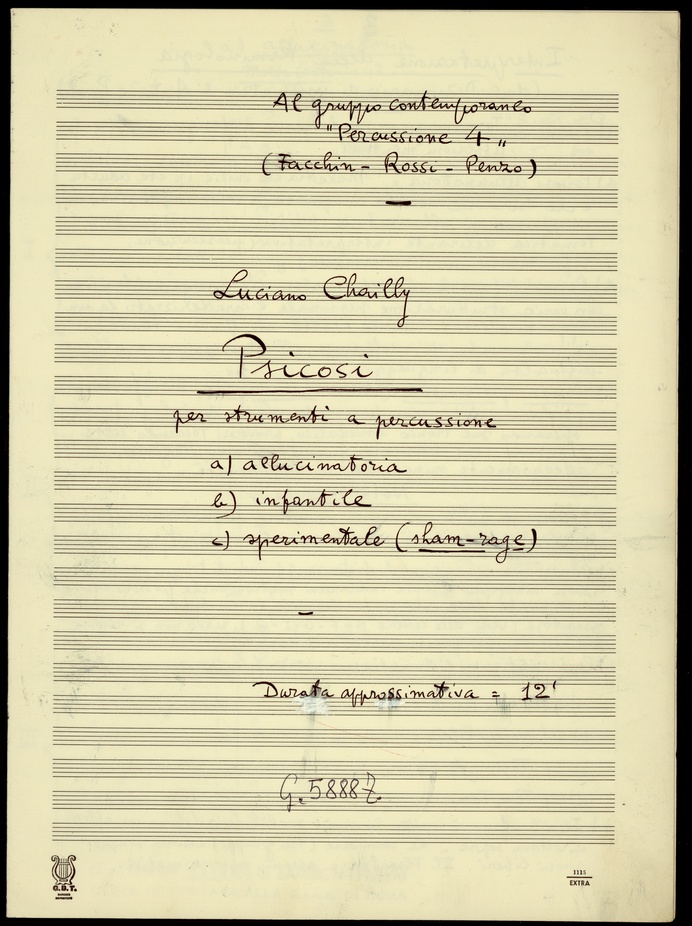 Al gruppo contemporaneo
"Percussione 4"
(Facchin - Rossi - Penzo)
Luciano Chailly
Psicosi
per strumenti a percussione
a) allucinatoria
b) infantile
c) sperimentale (sham-rage)
Durata approssimativa = 12'
G. 58887.
G.D.T.
1115
EXTRA